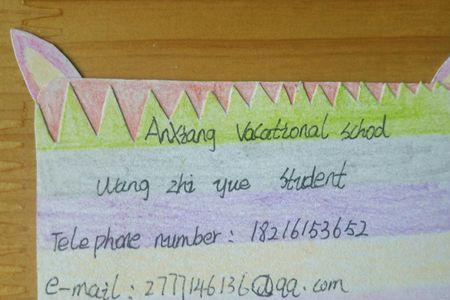 Anxiang Vacational school
Wang zhi yue student
Telephone number: 18216153652
e-mail: 2777146136@qq.com